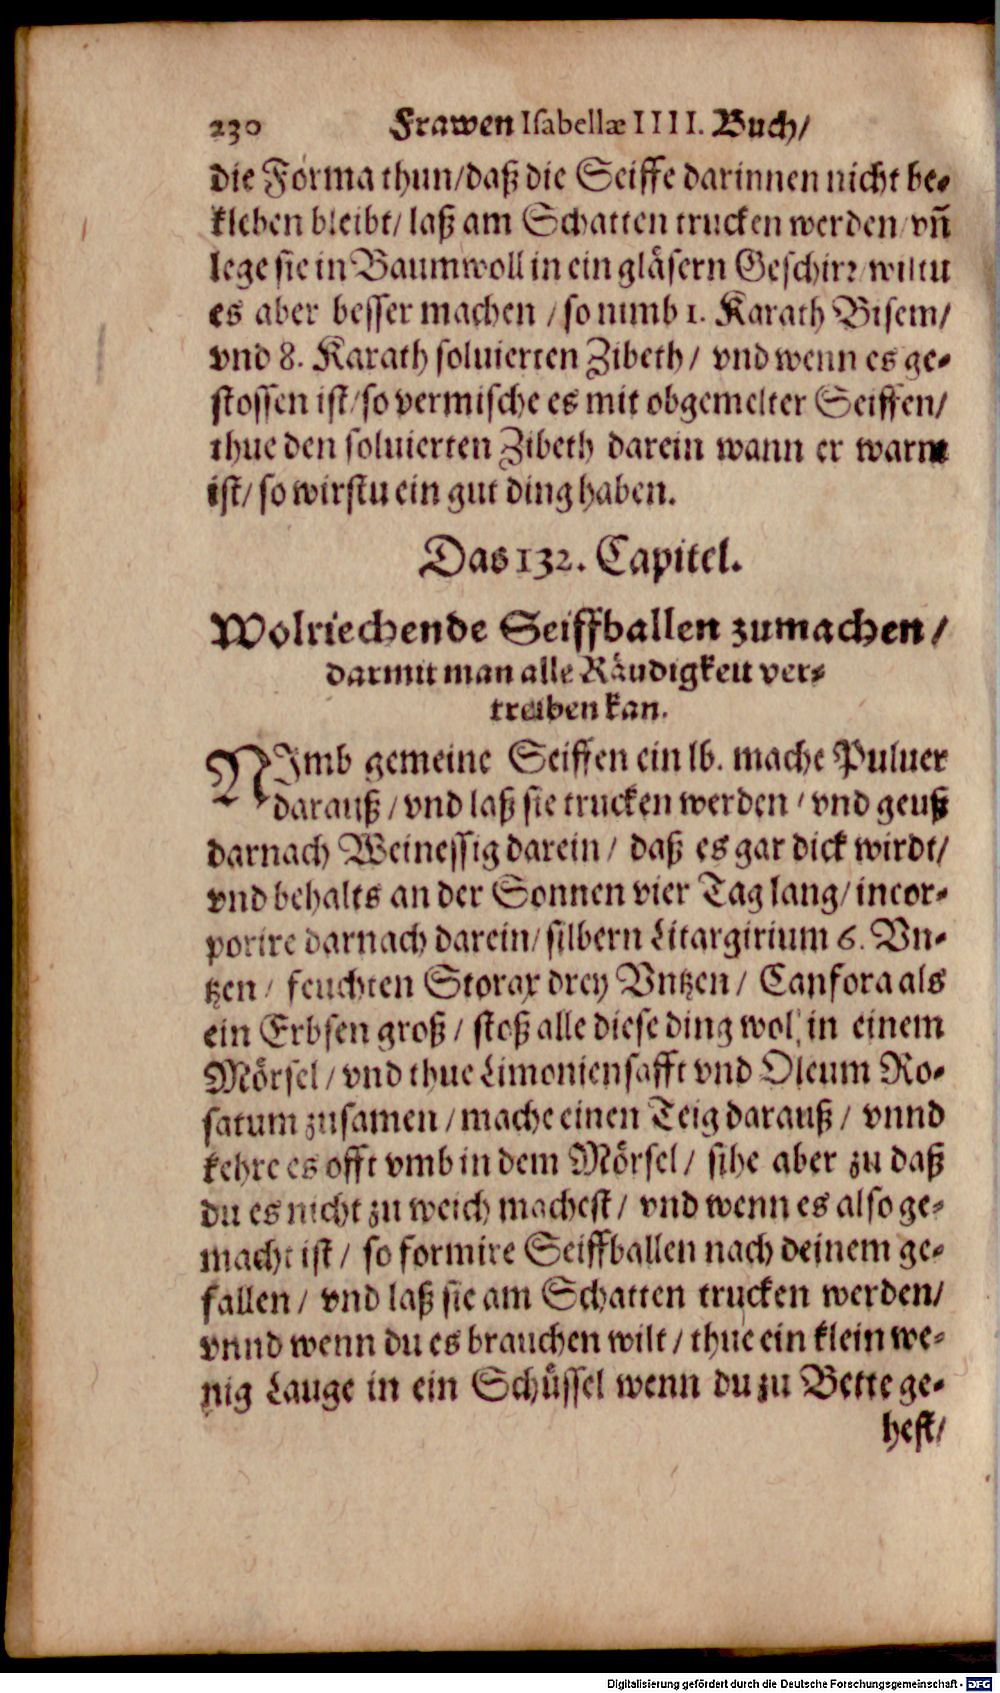 230 Frawen Isabellæ IIII. Buch/
die Forma thun/daß die Seiffe darinnen nicht be⸗
kleben bleibt/ laß am Schatten trucken werden/vñ
lege sie in Baumwoll in ein gläsern Geschirr/wiltu
es aber besser machen /so nimb 1. Karath Bisem/
vnd 8. Karath soluierten Zibeth/ vnd wenn es ge⸗
stossen ist/so vermische es mit obgemelter Seiffen/
thue den soluierten Zibeth darein wann er warm
ist/ so wirstu ein gut ding haben.
Das 132. Capitel.
Wolriechende Seiffballen zumachen/
darmit man alle Räudigkeit ver⸗
treiben kan.
NImb gemeine Seiffen ein lb. mache Puluer
darauß/vnd laß sie trucken werden/vnd geuß
darnach Weinessig darein/ daß es gar dick wirdt/
vnd behalts an der Sonnen vier Tag lang/incor⸗
porire darnach darein/silbern Litargirium 6. Vn⸗
tzen/ feuchten Storax drey Vntzen/ Canfora als
ein Erbsen groß/ stoß alle diese ding wol in einem
Mörsel/vnd thue Limoniensafft vnd Oleum Ro⸗
satum zusamen/mache einen Teig darauß/ vnnd
kehre es offt vmb in dem Mörsel/ sihe aber zu daß
du es nicht zu weich machest/ vnd wenn es also ge⸗
macht ist/ so formire Seiffballen nach deinem ge⸗
fallen/ vnd laß sie am Schatten trucken werden/
vnnd wenn du es brauchen wilt/thue ein klein we⸗
nig Lauge in ein Schüssel wenn du zu Bette ge⸗
hest/
Digitalisierung gefördert durch die Deutsche Forschungsgemeinschaft - DFG